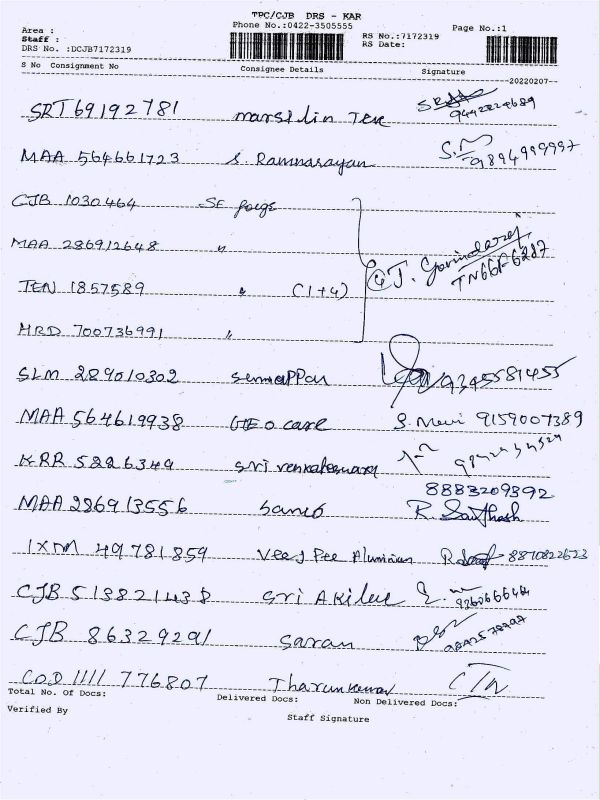 TPC/CJB DRS - KAR
Area : Phone No.:0422-3505555 Page No.:1
Staff : RS No.:7172319
DRS No. :DCJB7172319 RS Date:
S No Consignment No Consignee Details Signature
20220207
SRT 69192781 marsilin Tex
MAA 564661723 S. Ramnarayan S.M 9894999997
CJB 1030464 SE forge
MAA 286912648 "
TEN 1857589 " (1+4) J. Govindaraj TN66F6287
MRD 700736991 "
SLM 289010302 9345581455
MAA 564619938 GEO care 9159007389
KRR 5226349 Sri venkateswara
8883209392
MAA 286913556 R. Santhosh
IXM 49781859 Veej Pee Aluminium 8870822623
CJB 513821438 Sri Akilee
CJB 86329291 Saran
COD 1111 776807 Tharunkumar
Total No. Of Docs: Delivered Docs: Non Delivered Docs:
Verified By Staff Signature